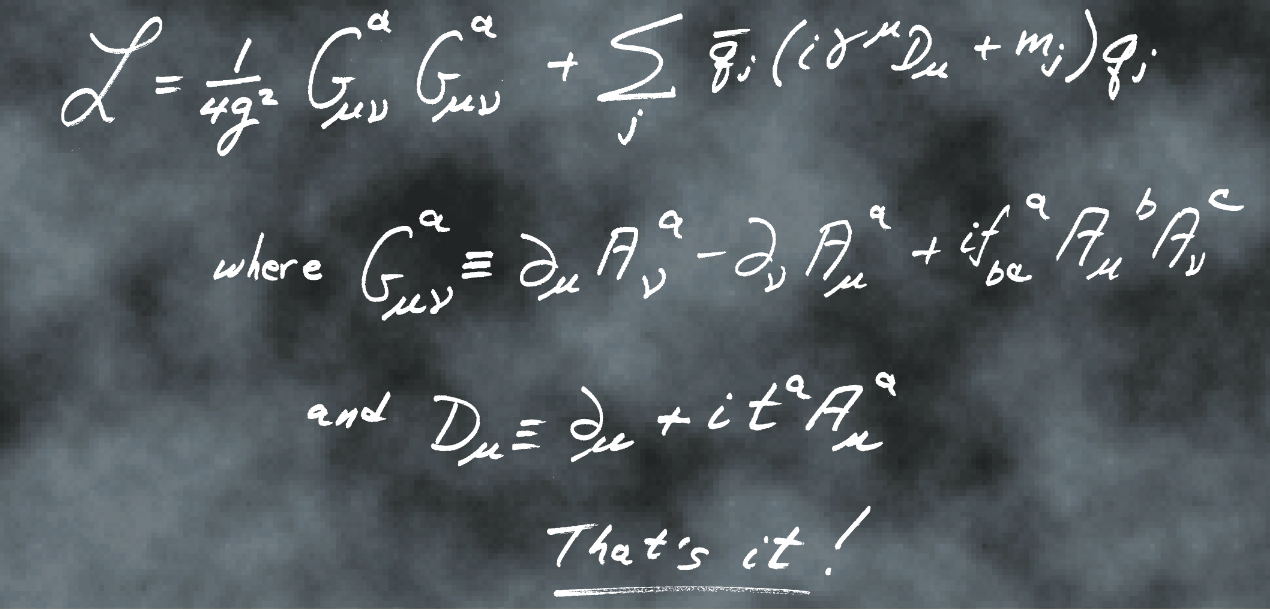 ℒ = 1/4g² Gᵃ_μν Gᵃ_μν + Σ_j q̄_j (iγ^μ D_μ + m_j) q_j
where Gᵃ_μν ≡ ∂_μ Aᵃ_ν − ∂_ν Aᵃ_μ + if^a_bc A^b_μ A^c_ν
and D_μ ≡ ∂_μ + it^a A^a_μ
That's it!